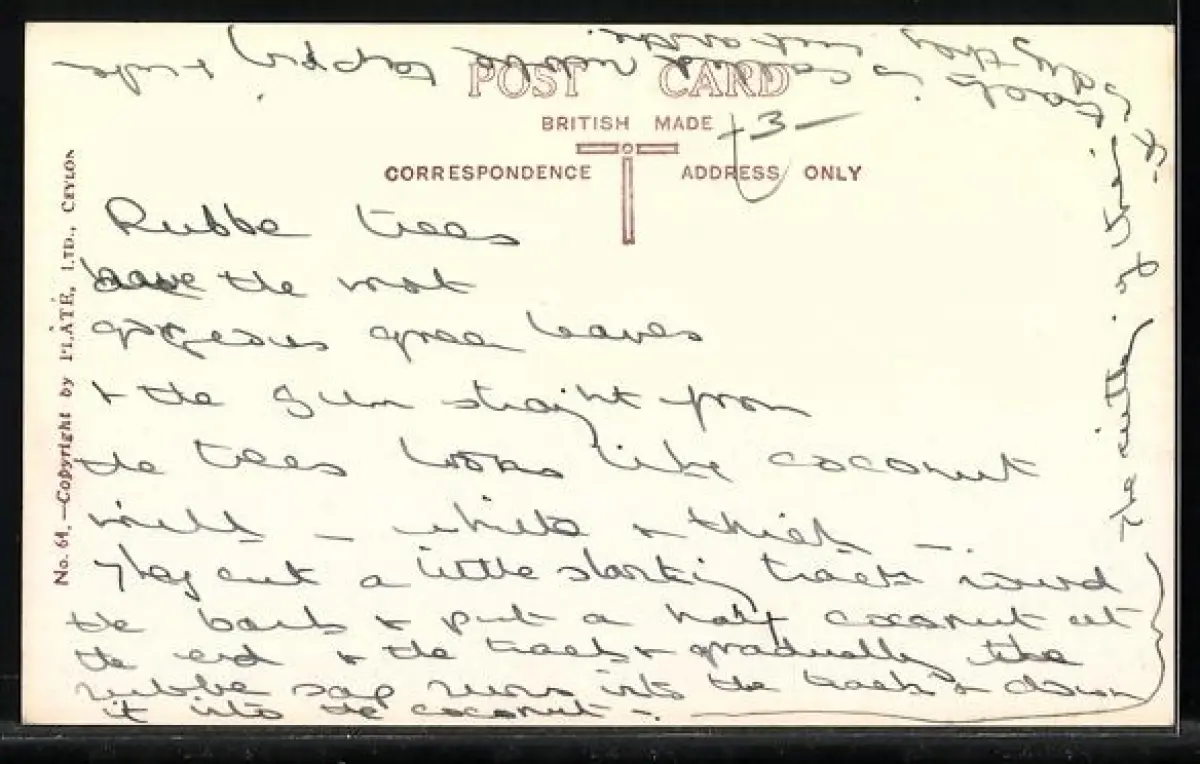 POST CARD
BRITISH MADE
CORRESPONDENCE ADDRESS ONLY
No. 64.—Copyright by PLÂTÉ, LTD., CEYLON
- 3 -
Rubbe trees
have the most
gorgeous green leaves
+ the gum straight from
the trees looks like coconut
milk – white + thick –.
They cut a little slanting track round
the bark + put a half coconut at
the end + the track + gradually the
rubbe sap runs into the track + down
it into the coconut –.
The cutting of this is